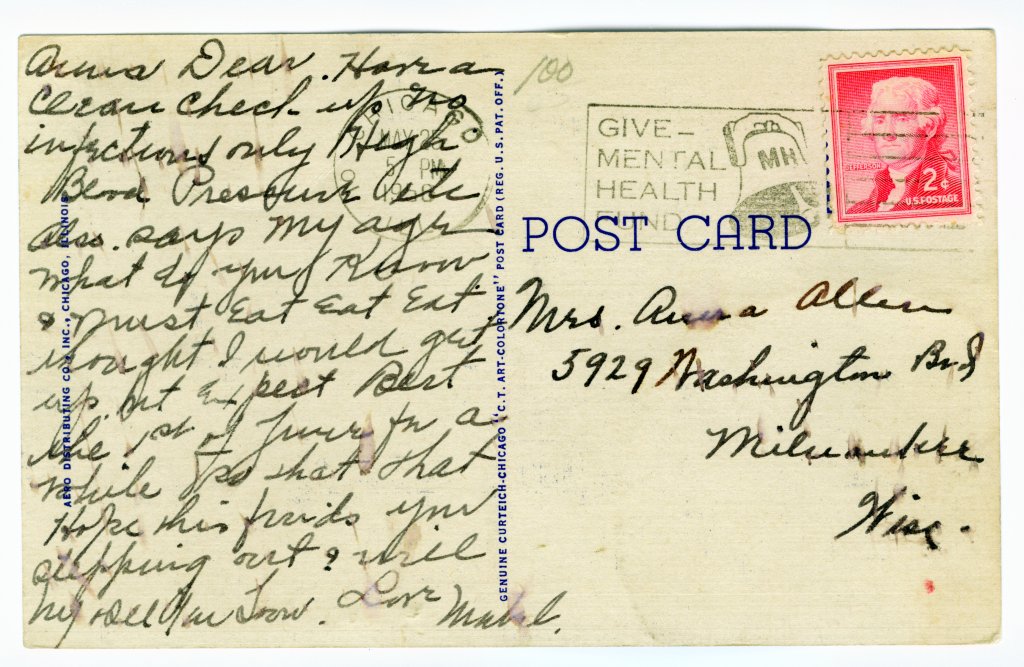 Anna Dear. Have a
Clean Check up no
infections only High
Blood Pressure
also. says My age
what do you Know
& must Eat Eat Eat.
thought I would get
up. but Expect Best
the 1st of June for a
while so that that
Hope this finds you
stepping out & will
try
Love Mabel.
AERO DISTRIBUTING CO., INC., CHICAGO, ILLINOIS
GENUINE CURTEICH-CHICAGO "C.T. ART-COLORTONE" POST CARD (REG. U.S. PAT. OFF.)
100
CHICAGO
MAY
5 PM
GIVE—
MENTAL
HEALTH
FUND
MH
JEFFERSON
2¢
U.S. POSTAGE
POST CARD
Mrs. Anna Allen
5929 Washington Blvd
Milwaukee
Wisc.